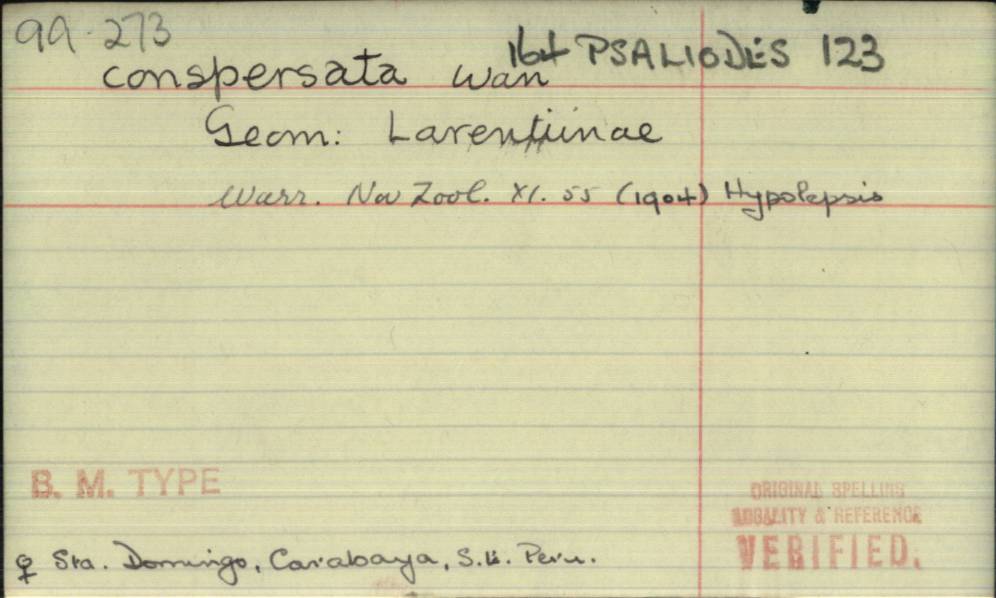 99-273
164 PSALIODES 123
conspersata Warr
Geom: Larentiinae
Warr. Nov Zool. XI. 55 (1904) Hypolepsis
B. M. TYPE
ORIGINAL SPELLING
LOCALITY & REFERENCE
VERIFIED.
♀ Sta. Domingo, Carabaya, S.E. Peru.